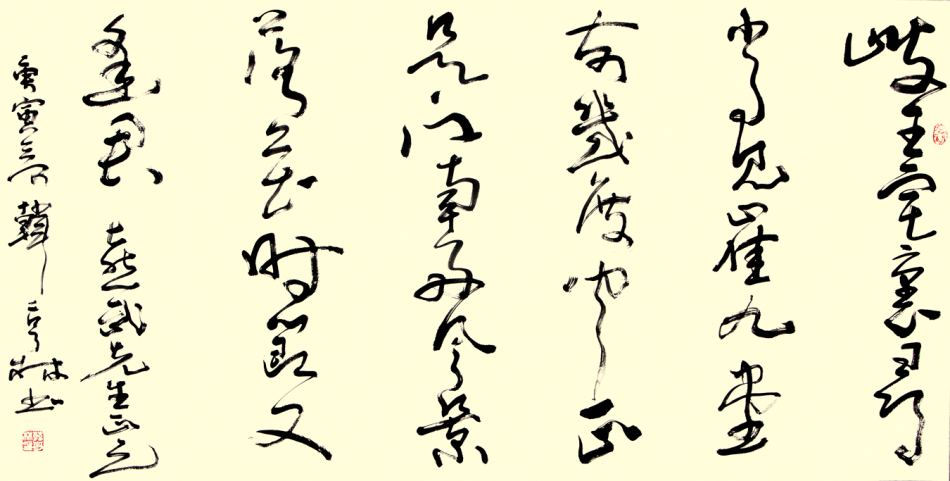 岐王宅裏尋
常見崔九堂
前幾度聞正
是江南好風景
落花時節又
逢君 武先生正之
庚寅 韓亨林书